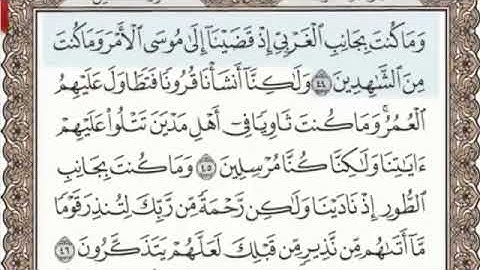 وَمَا كُنتَ بِجَانِبِ ٱلْغَرْبِيِّ إِذْ قَضَيْنَآ إِلَىٰ مُوسَى ٱلْأَمْرَ وَمَا كُنتَ
مِنَ ٱلشَّٰهِدِينَ ٤٤ وَلَٰكِنَّآ أَنشَأْنَا قُرُونًا فَتَطَاوَلَ عَلَيْهِمُ
ٱلْعُمُرُ ۚ وَمَا كُنتَ ثَاوِيًا فِىٓ أَهْلِ مَدْيَنَ تَتْلُوا۟ عَلَيْهِمْ
ءَايَٰتِنَا وَلَٰكِنَّا كُنَّا مُرْسِلِينَ ٤٥ وَمَا كُنتَ بِجَانِبِ
ٱلطُّورِ إِذْ نَادَيْنَا وَلَٰكِن رَّحْمَةً مِّن رَّبِّكَ لِتُنذِرَ قَوْمًا
مَّآ أَتَىٰهُم مِّن نَّذِيرٍ مِّن قَبْلِكَ لَعَلَّهُمْ يَتَذَكَّرُونَ ٤٦